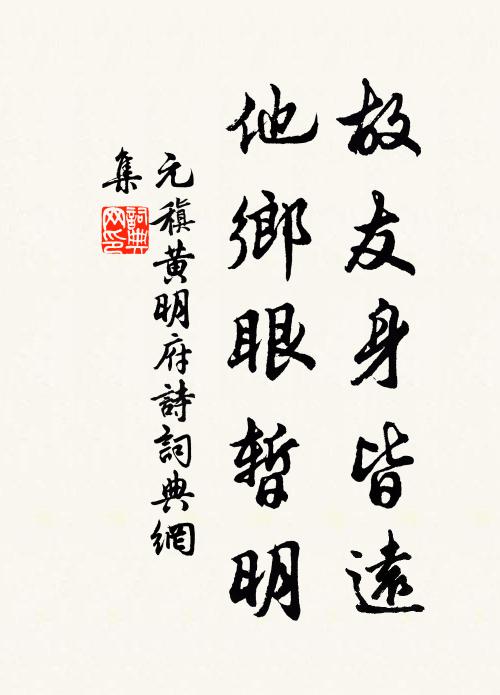 故友身皆遠
他鄉眼暫明
元稹黄明府詩詞典網
集
詞典網印